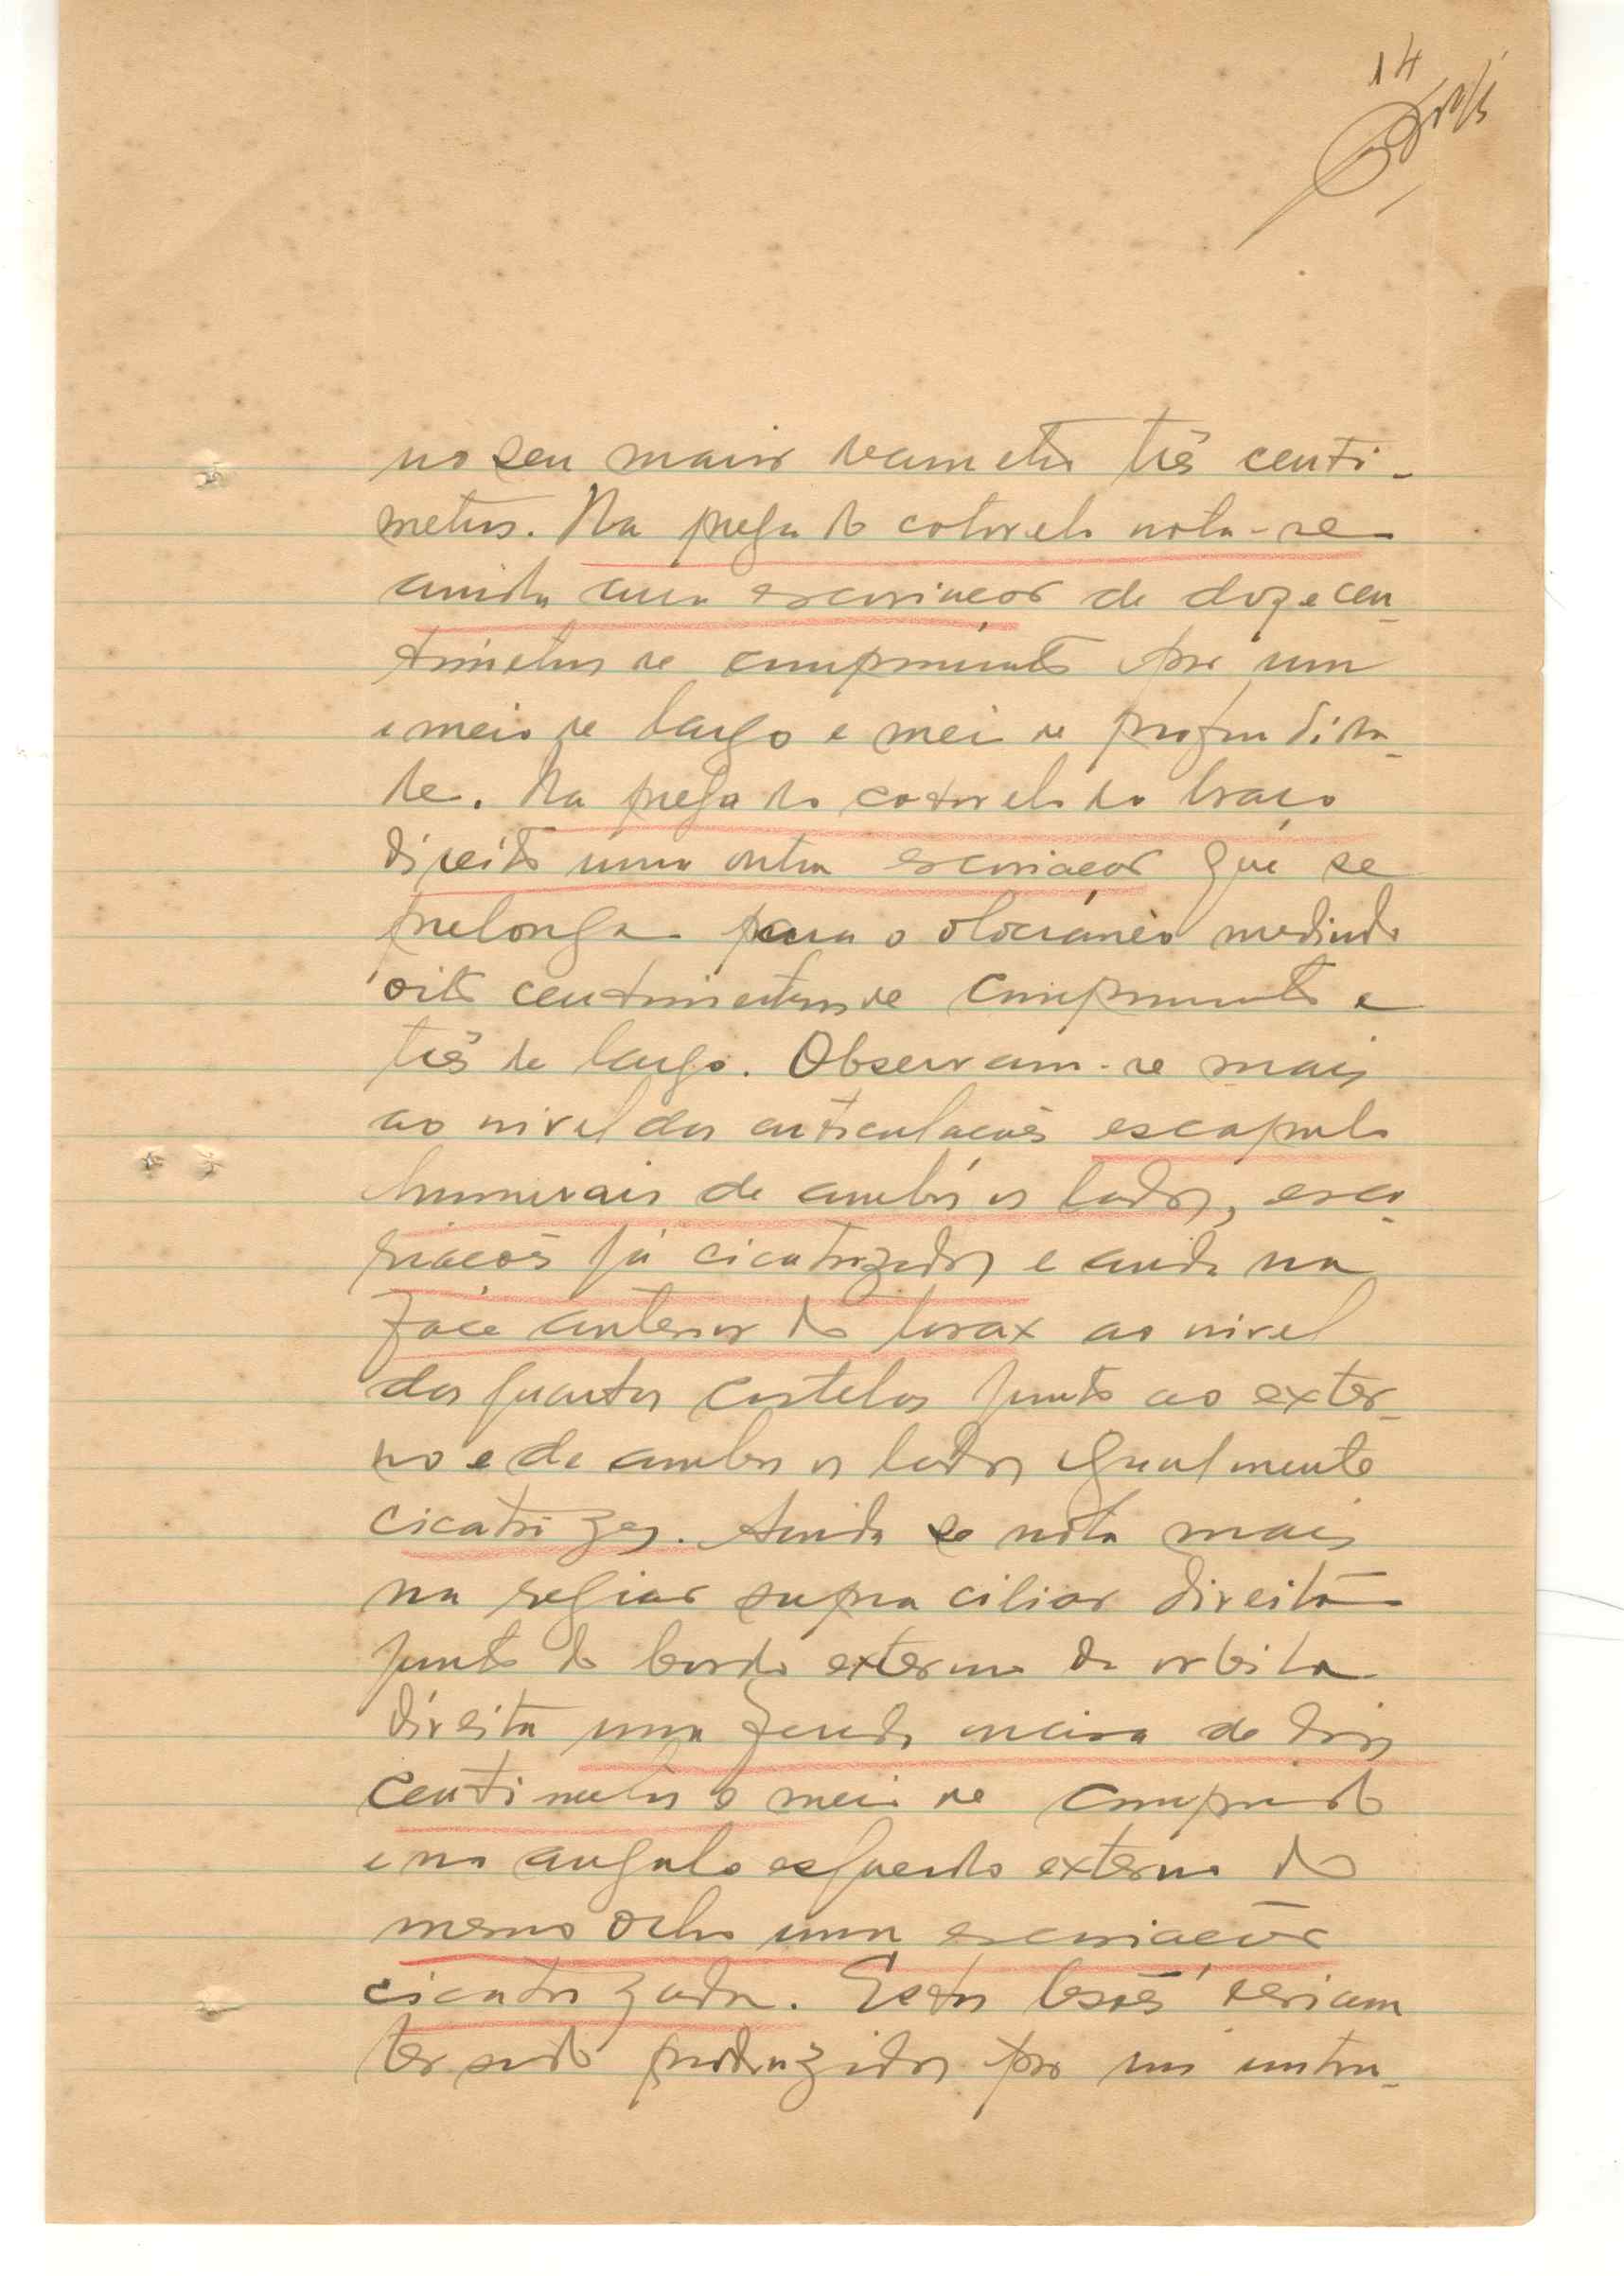 14
no seu maior diametro três centi-
metros. Na prega do cotovelo nota-se
ainda uma escoriação de doze cen-
timetros de comprimento por um
e meio de largo e meio de profundida-
de. Na prega do cotovelo do braço
direito uma outra escoriação que se
prolonga para o olocraneo medindo
oito centimetros de comprimento e
três de largo. Observam-se mais
ao nivel das articulações escapulo
humerais de ambos os lados, esco-
riações já cicatrizadas e ainda na
face anterior do torax ao nivel
das quartas costelas junto ao exter-
no e de ambos os lados igualmente
cicatrizes. Ainda se nota mais
na região supra ciliar direita
junto do bordo externo da orbita
direita uma ferida incisa de dois
centimetros e meio de comprido
e no angulo esquerdo externo do
mesmo olho uma escoriação
cicatrizada. Estas lesões deviam
ter sido produzidas por um instru-